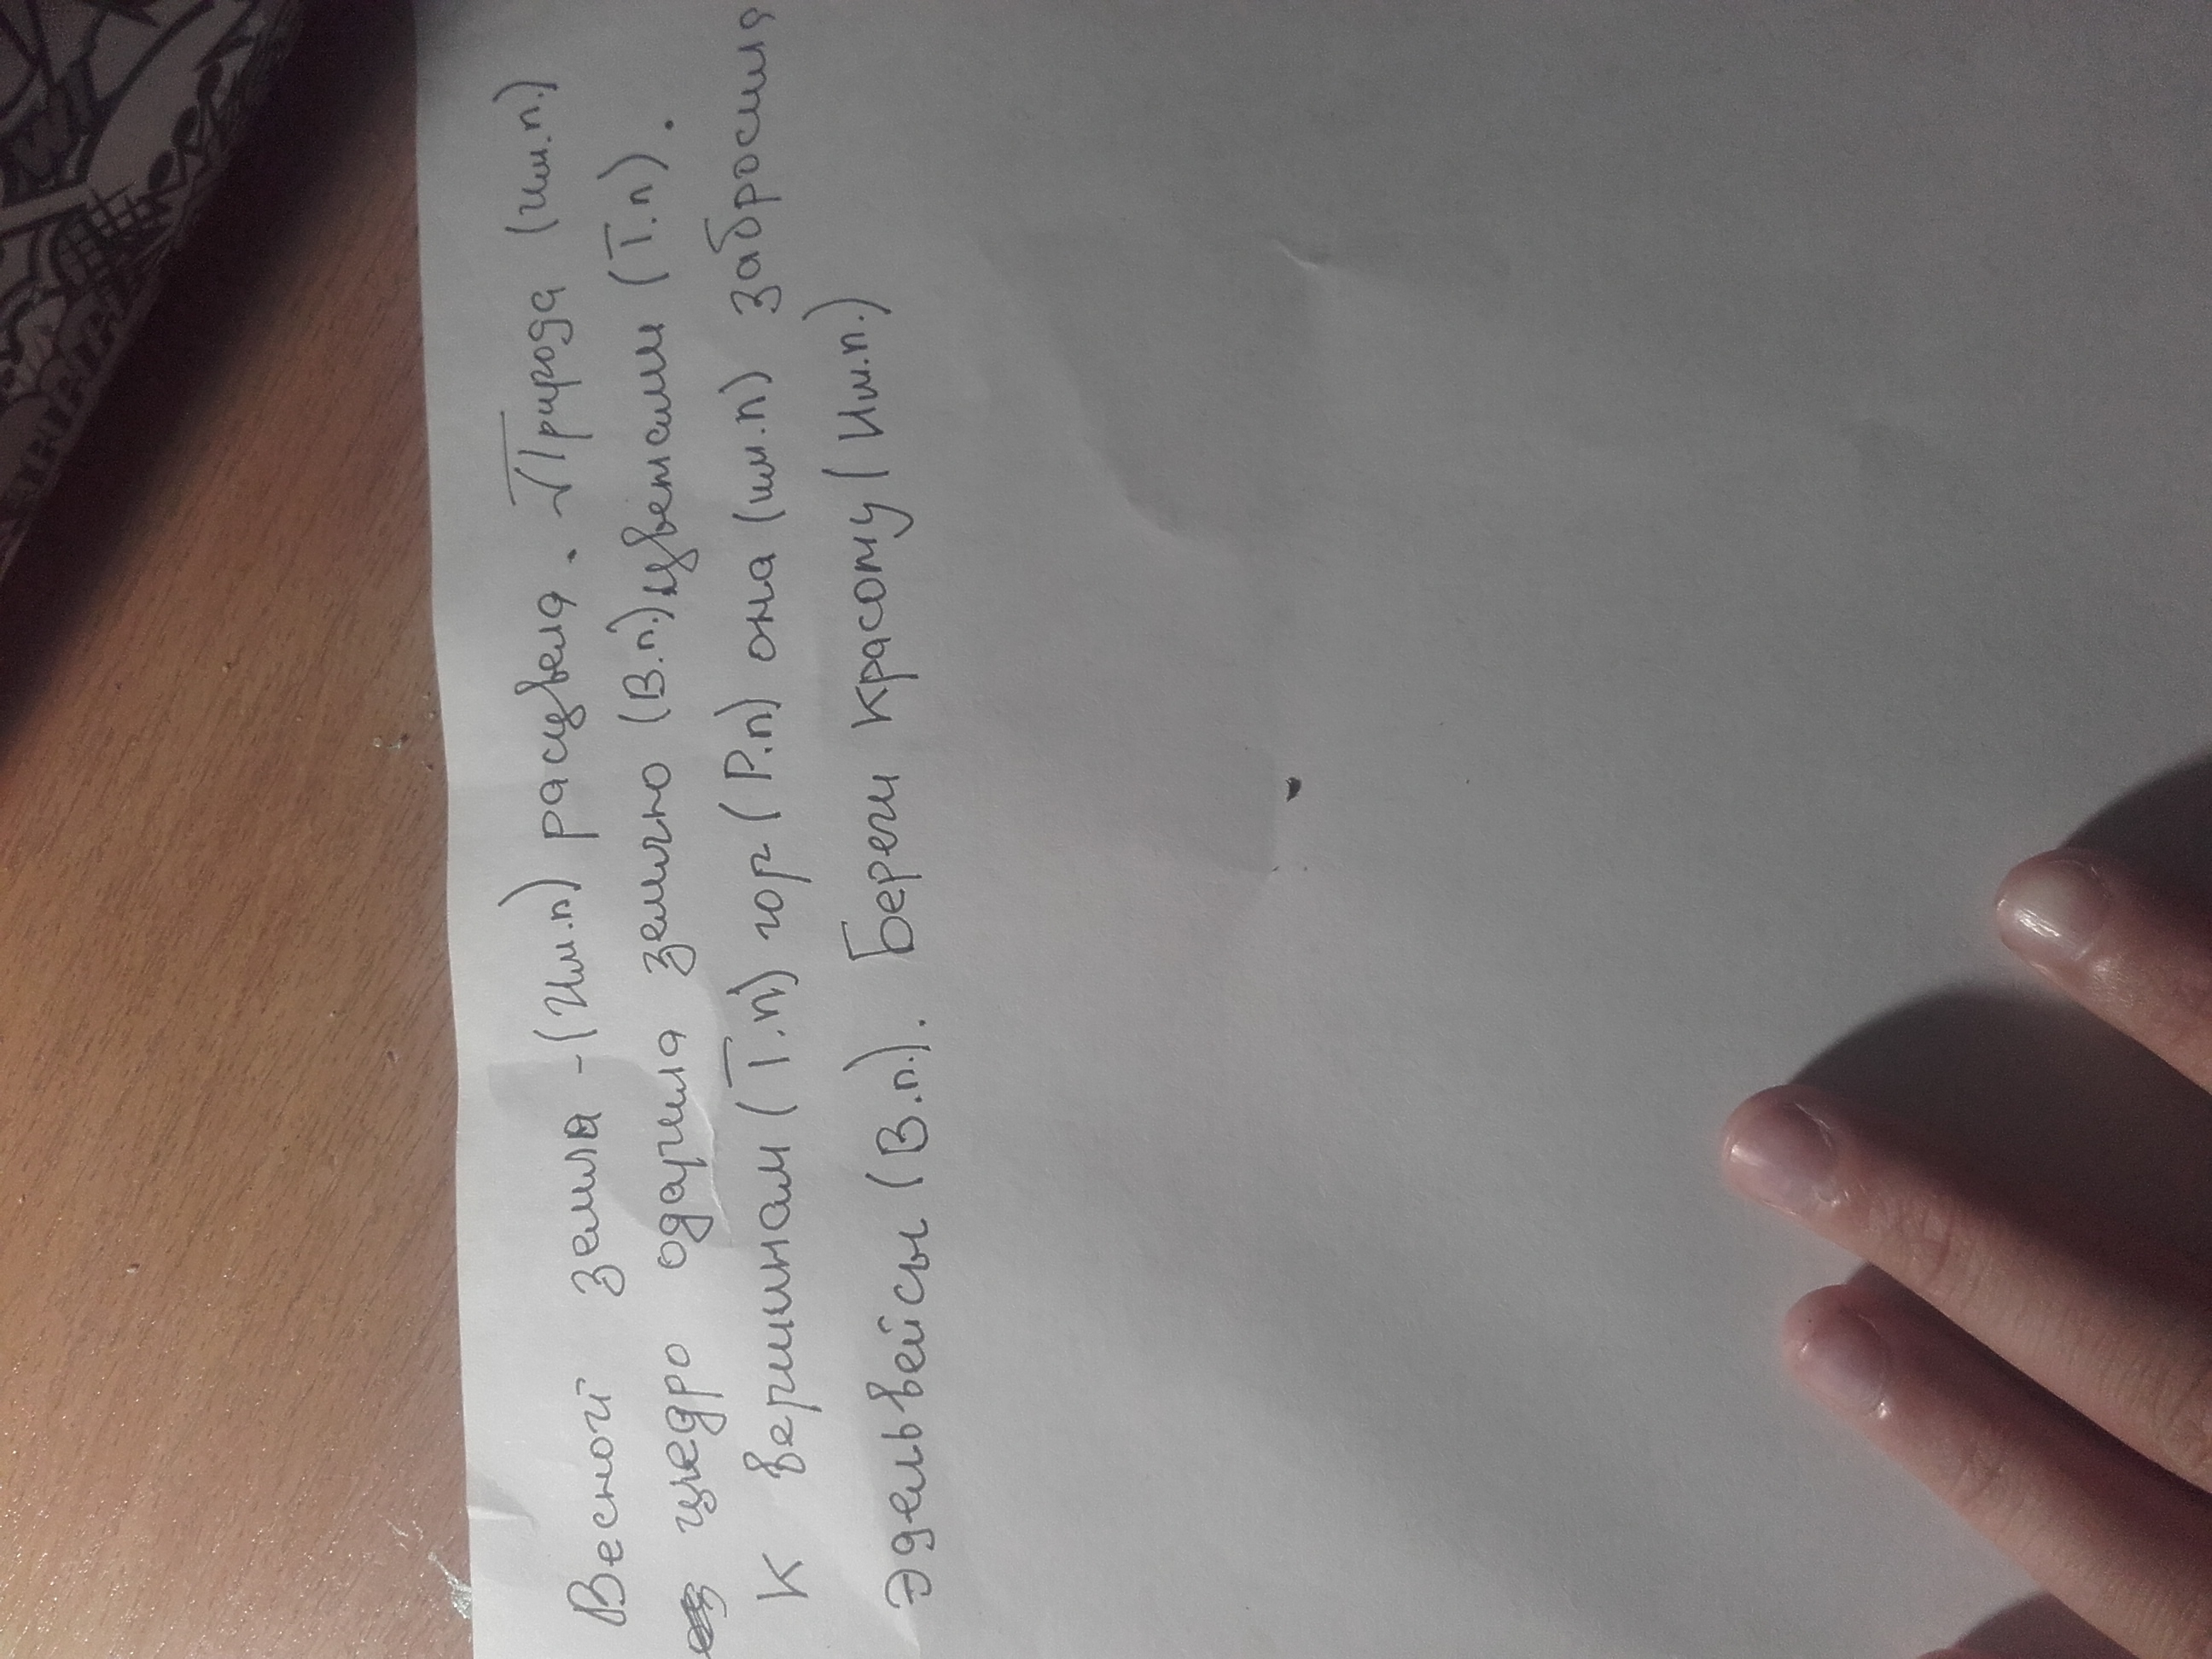 Весной земля -(Им.п) расцвела. Природа (им.п.)
щедро одарила землю (В.п.) цветами (Т.п).
К вершинам (Т.п) гор (Р.п) она (им.п) забросила
эдельвейсы (В.п.). Береги красоту (Им.п.)